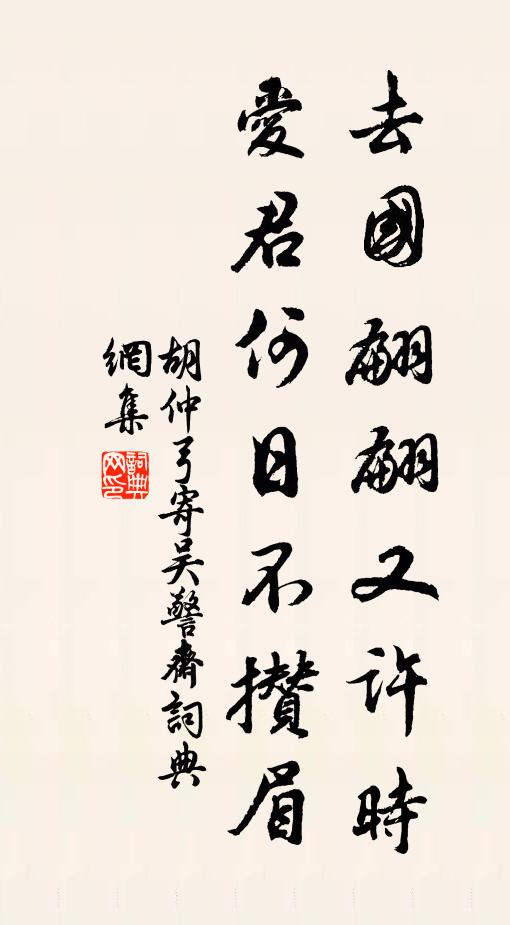 去國翩翩又許時
愛君何日不攢眉
胡仲弓寄吴警齋詞典
網集
詞典網印